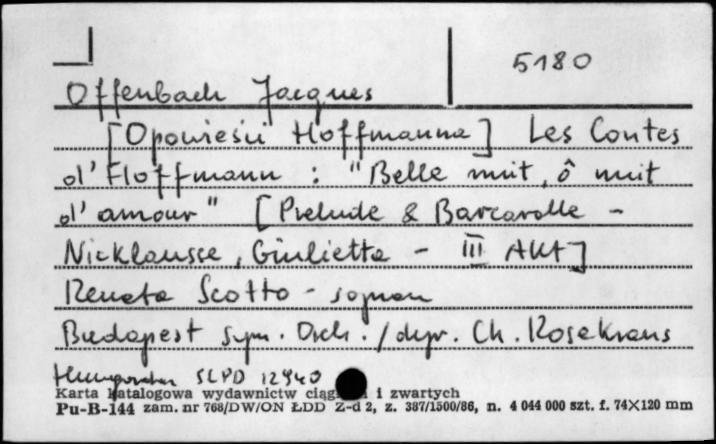 5180
Offenbach Jacques
[Opowieści Hoffmanna] Les Contes
d'Hoffmann : "Belle nuit, ô nuit
d'amour" [Prelude & Barcarolle -
Nicklausse, Giulietta - III Akt]
Renata Scotto - sopran
Budapest Sym. Orch. / dyr. Ch. Rosekrans
Hungaroton SLPD 12940
Karta katalogowa wydawnictw i zwartych
Pu-B-144 zam. nr 768/DW/ON ŁDD Z-d 2, z. 387/1500/86, n. 4 044 000 szt. f. 74X120 mm